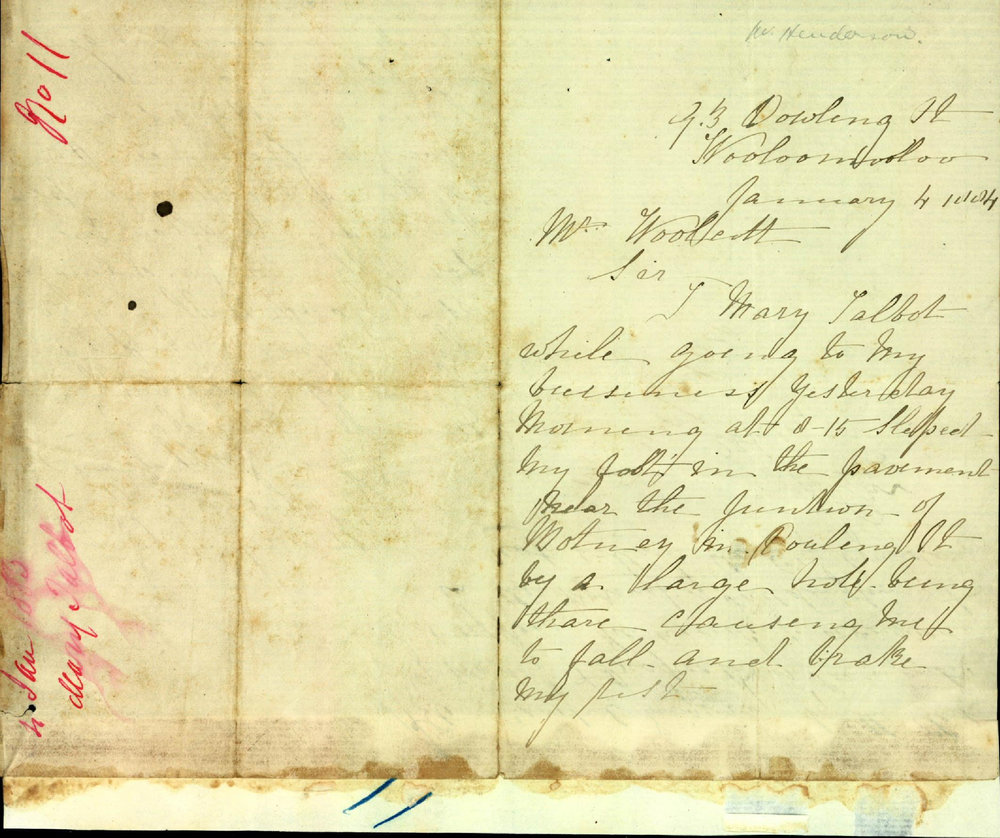 Mr. Henderson.
93 Dowling St
Wooloomooloo
January 4 1884
Mr Woollcott
Sir
I Mary Talbot
while going to my
buisiness Yesterday
Morneng at 8-15 Sleped
my foot in the pavement
near the juntion of
Botney in Douleng St
by a large hole being
thare causeng me
to fall and brake
my
No 11
4 Jan
Mary Talbot
11